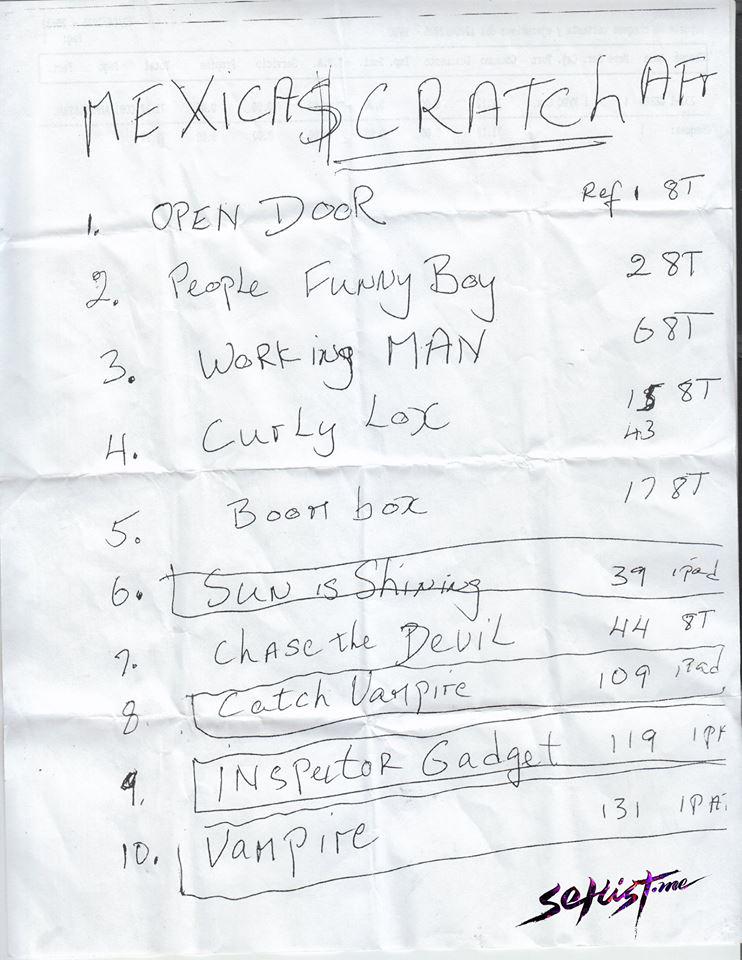 MEXICA$CRATCh AFr
1. OPEN DOOR Ref 1 8T
2. People Funny Boy 2 8T
3. Working MAN 6 8T
4. Curly Lox 15 8T
43
5. Boom box 17 8T
6. Sun is Shining 39 ipad
7. Chase the Devil 44 8T
8. Catch Vampire 109 ipad
9. INSpector Gadget 119
10. Vampire 131 IPA
setlist.me